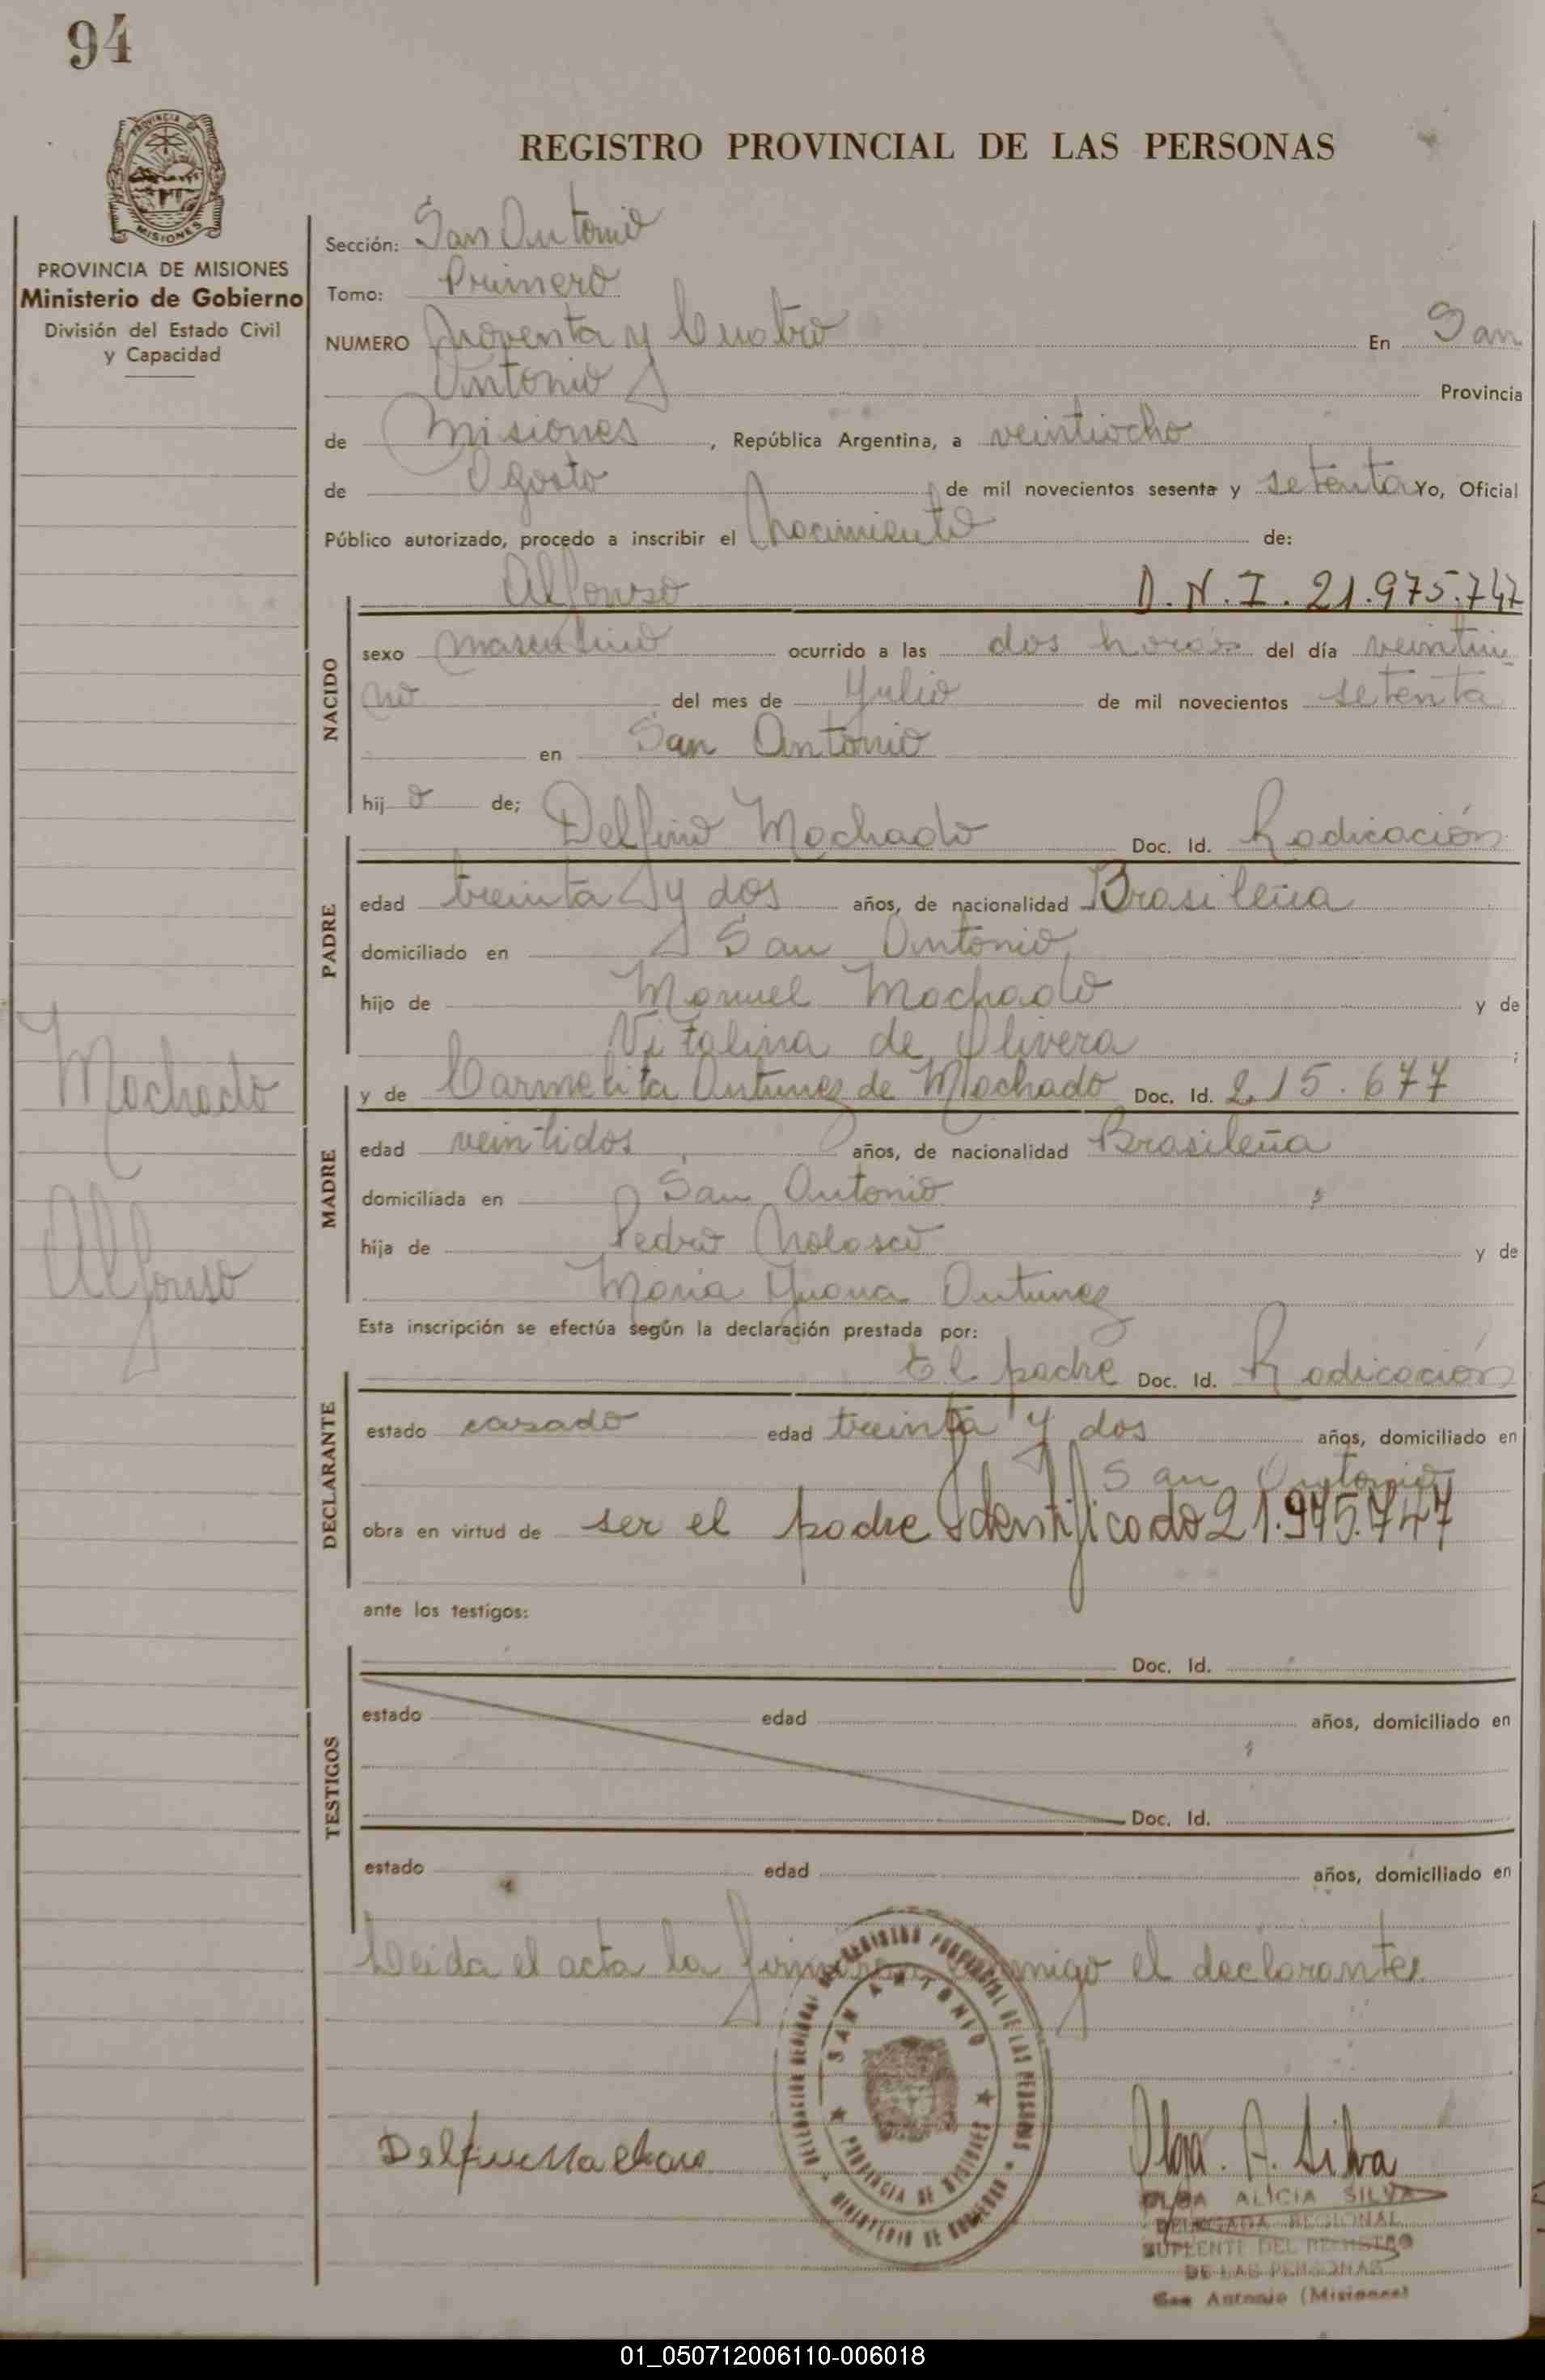 94
PROVINCIA DE MISIONES
REGISTRO PROVINCIAL DE LAS PERSONAS
PROVINCIA DE MISIONES
Ministerio de Gobierno
División del Estado Civil
y Capacidad
Sección: San Antonio
Tomo: Primero
NUMERO Noventa y Cuatro En San
Antonio Provincia
de Misiones, República Argentina, a veintiocho
de Agosto de mil novecientos sesenta y setenta Yo, Oficial
Público autorizado, procedo a inscribir el Nacimiento de:
Alfonso D.N.I. 21.975.747
NACIDO
sexo masculino ocurrido a las dos horas del día veintiu
no del mes de Julio de mil novecientos setenta
en San Antonio
hijo de; Delfino Machado Doc. Id. Radicación
PADRE
edad treinta y dos años, de nacionalidad Brasileña
domiciliado en San Antonio
hijo de Manuel Machado y de
Vitalina de Olivera ;
y de Carmelita Antunez de Machado Doc. Id. 215.677
Machado
Alfonso
MADRE
edad veintidos años, de nacionalidad Brasileña
domiciliada en San Antonio
hija de Pedro Nolasco y de
Maria Juana Antunez
Esta inscripción se efectúa según la declaración prestada por:
El padre Doc. Id. Radicación
DECLARANTE
estado casado edad treinta y dos años, domiciliado en
San Antonio
obra en virtud de ser el padre Identificado 21.975.747
ante los testigos:
TESTIGOS
Doc. Id.
estado edad años, domiciliado en
Doc. Id.
estado edad años, domiciliado en
Leida el acta la firmaran conmigo el declarante
DELEGACIÓN REGIONAL DEL REGISTRO PROVINCIAL DE LAS PERSONAS
SAN ANTONIO
PROVINCIA DE MISIONES
MINISTERIO DE GOBIERNO
Olga. A. Silva
OLGA ALICIA SILVA
DELEGADA REGIONAL
SUPLENTE DEL REGISTRO
DE LAS PERSONAS
San Antonio (Misiones)
01_050712006110-006018